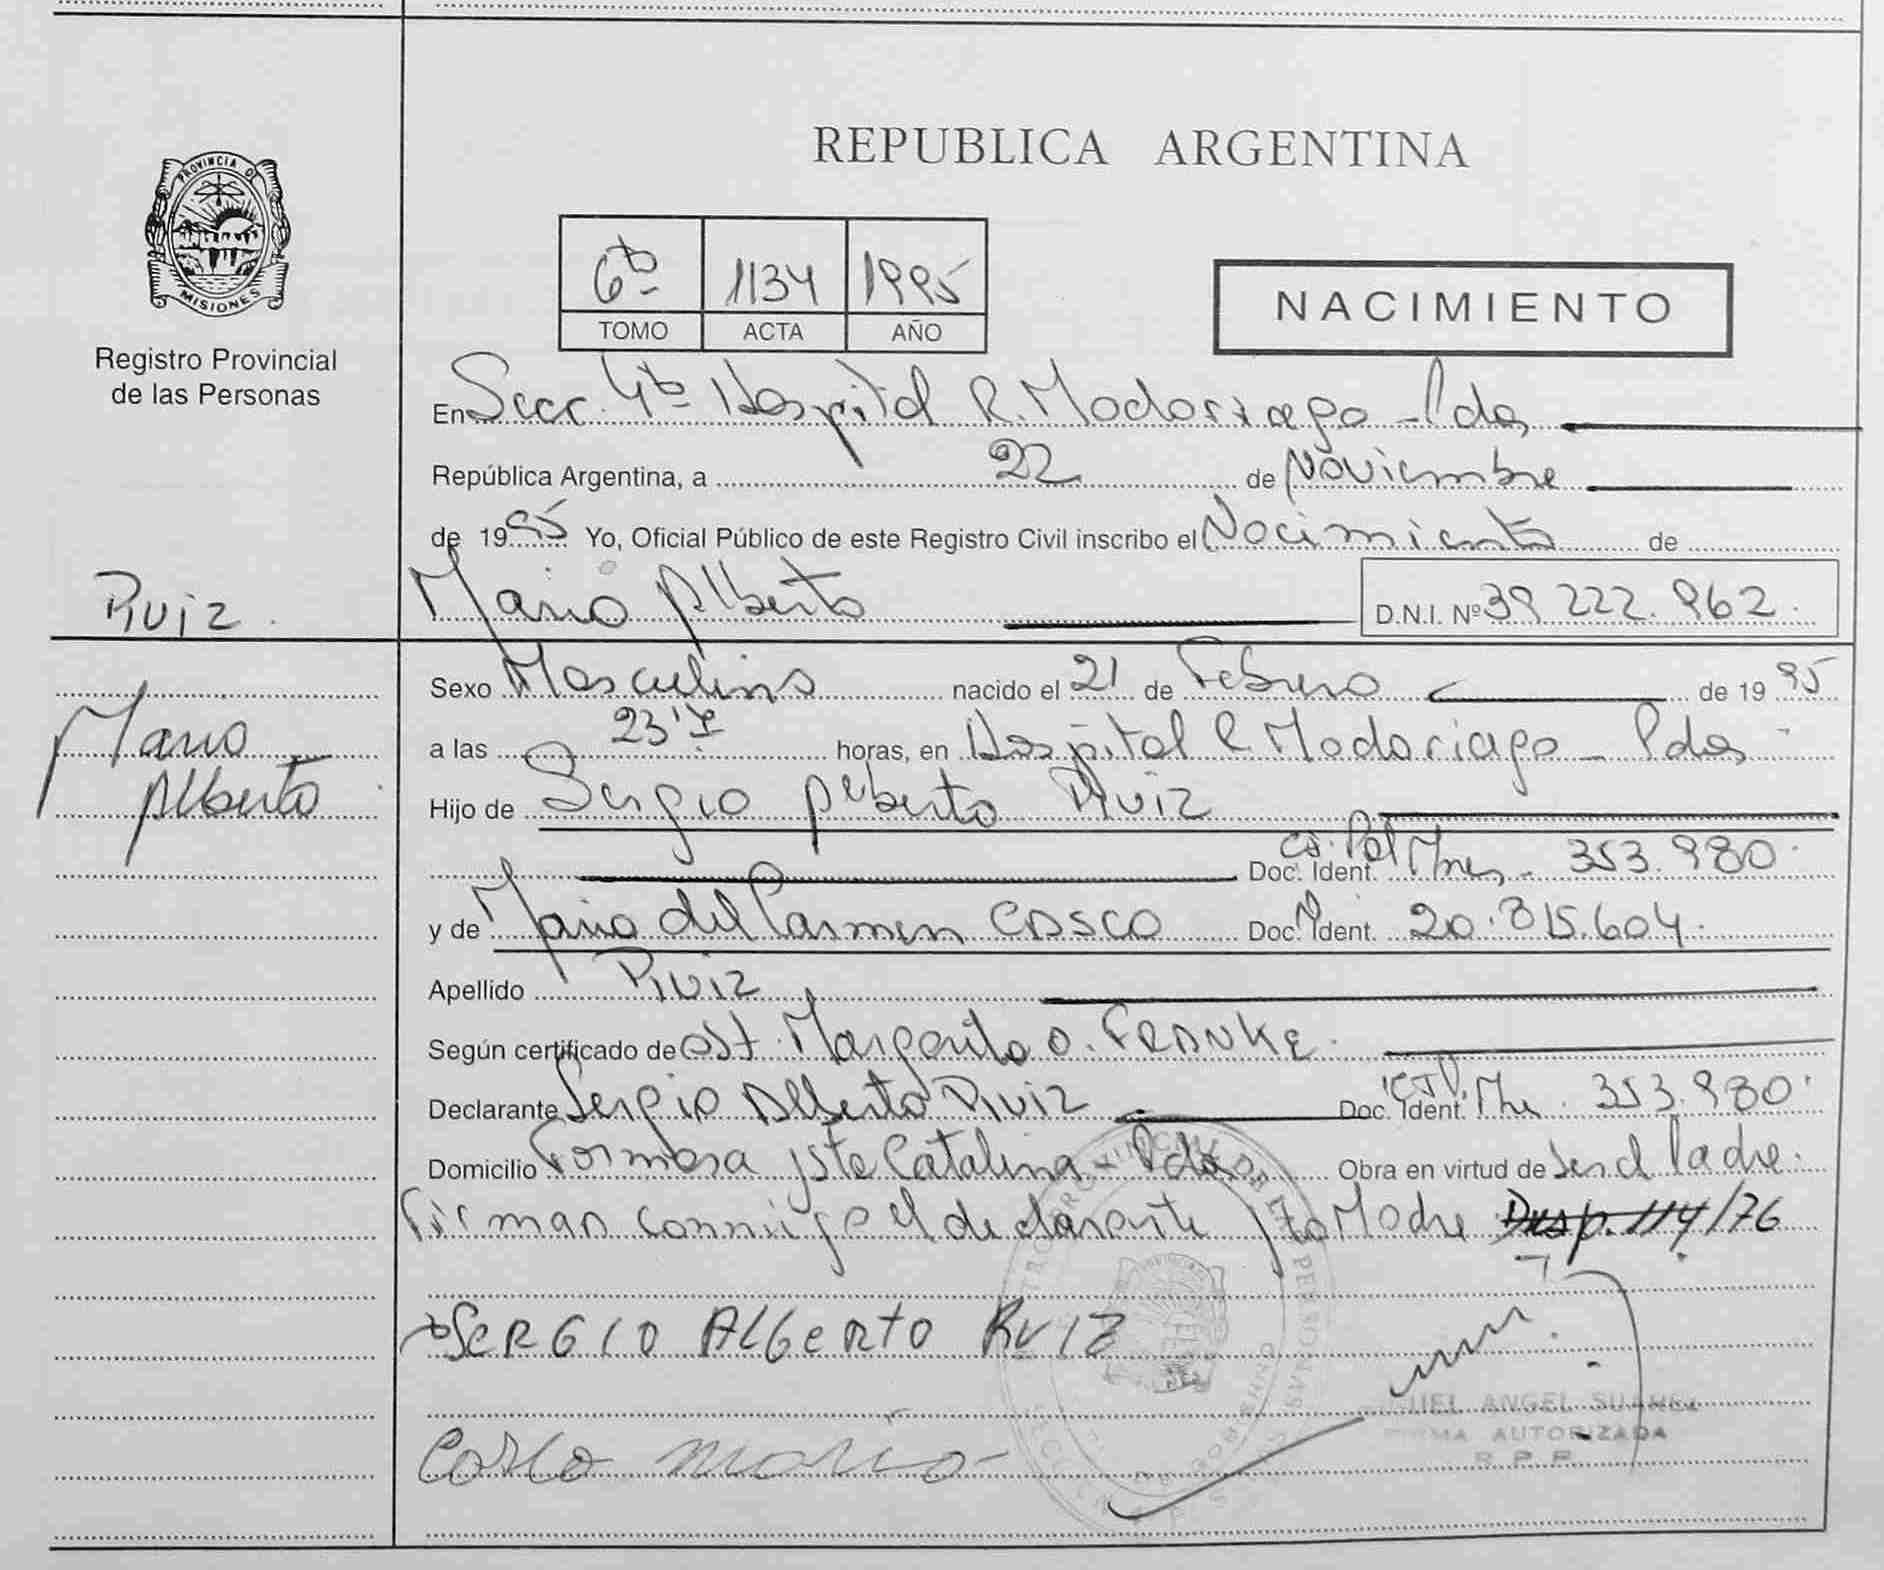 PROVINCIA DE
MISIONES
Registro Provincial
de las Personas
REPUBLICA ARGENTINA
6to 1134 1995
TOMO ACTA AÑO
NACIMIENTO
En Secc. 4ta Hospital R. Madariaga - Pdas
República Argentina, a 22 de Noviembre
de 1995 Yo, Oficial Público de este Registro Civil inscribo el Nacimiento de
Ruiz. Mario Alberto D.N.I. Nº 39.222.962.
Mario
Alberto
Sexo Masculino nacido el 21 de Febrero de 1995
a las 23 horas, en Hospital R. Madariaga - Pdas
Hijo de Sergio Alberto Ruiz
Doc. Ident. Ci. Pol Mnes. 353.980.
y de María del Carmen Casco Doc. Ident. 20.815.604.
Apellido Ruiz
Según certificado de Obst. Margarita O. Franke.
Declarante Sergio Alberto Ruiz Doc. Ident. 353.980.
Domicilio Formosa y Sta Catalina - Pdas Obra en virtud de ser el Padre.
Firman conmigo el declarante y la Madre Disp. 114/76
SERGIO ALBERTO RUIZ
MIGUEL ANGEL SUAREZ
FIRMA AUTORIZADA
R.P.P.
Casco Maria